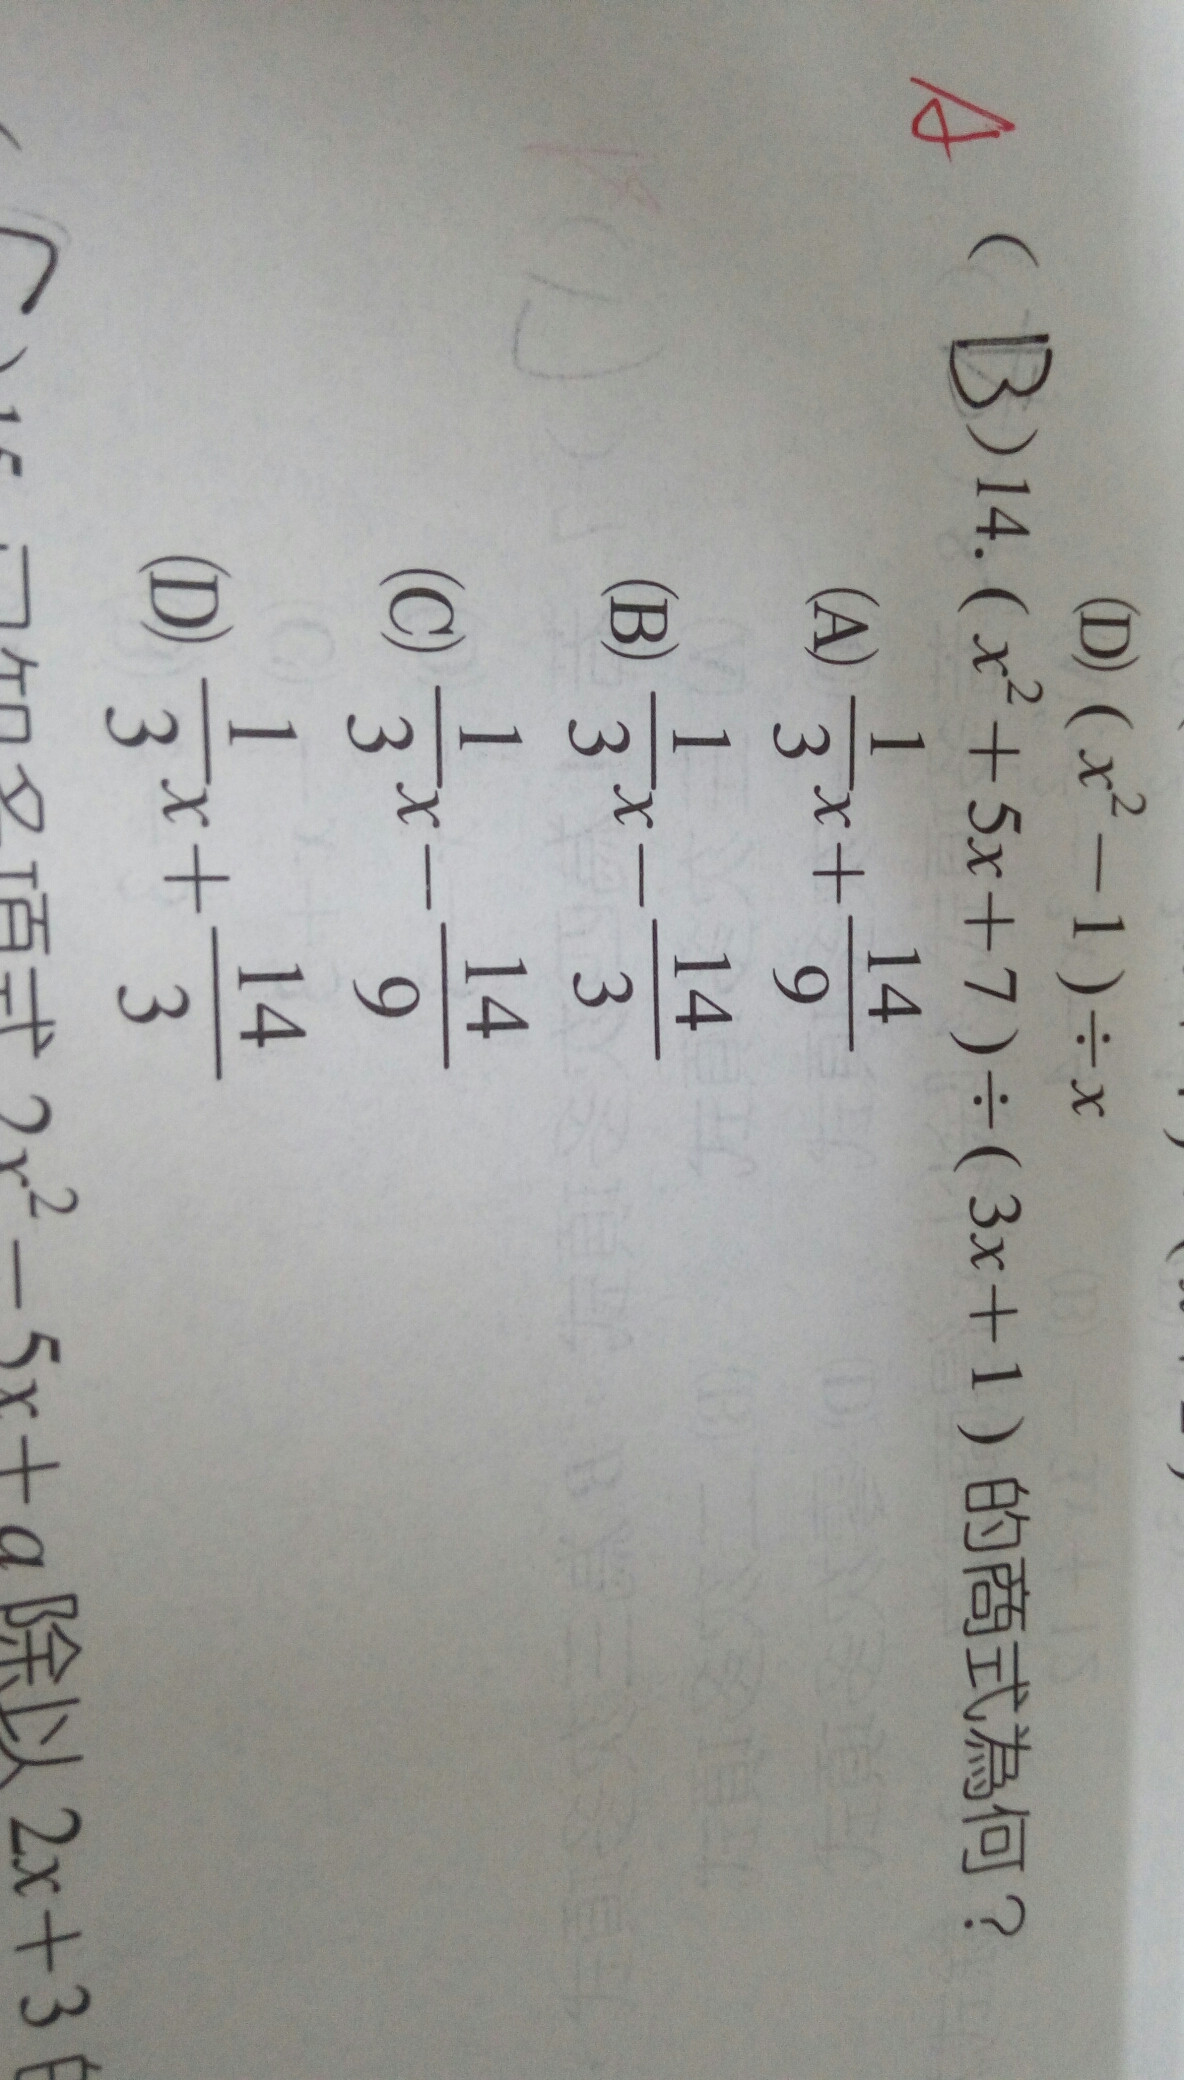 (D)(x²－1)÷x
A (B)14.(x²＋5x＋7)÷(3x＋1)的商式為何？
(A) 1/3 x＋14/9
(B) 1/3 x－14/3
(C) 1/3 x－14/9
(D) 1/3 x＋14/3
)15.已知多項式 2x²－5x＋a 除以 2x＋3